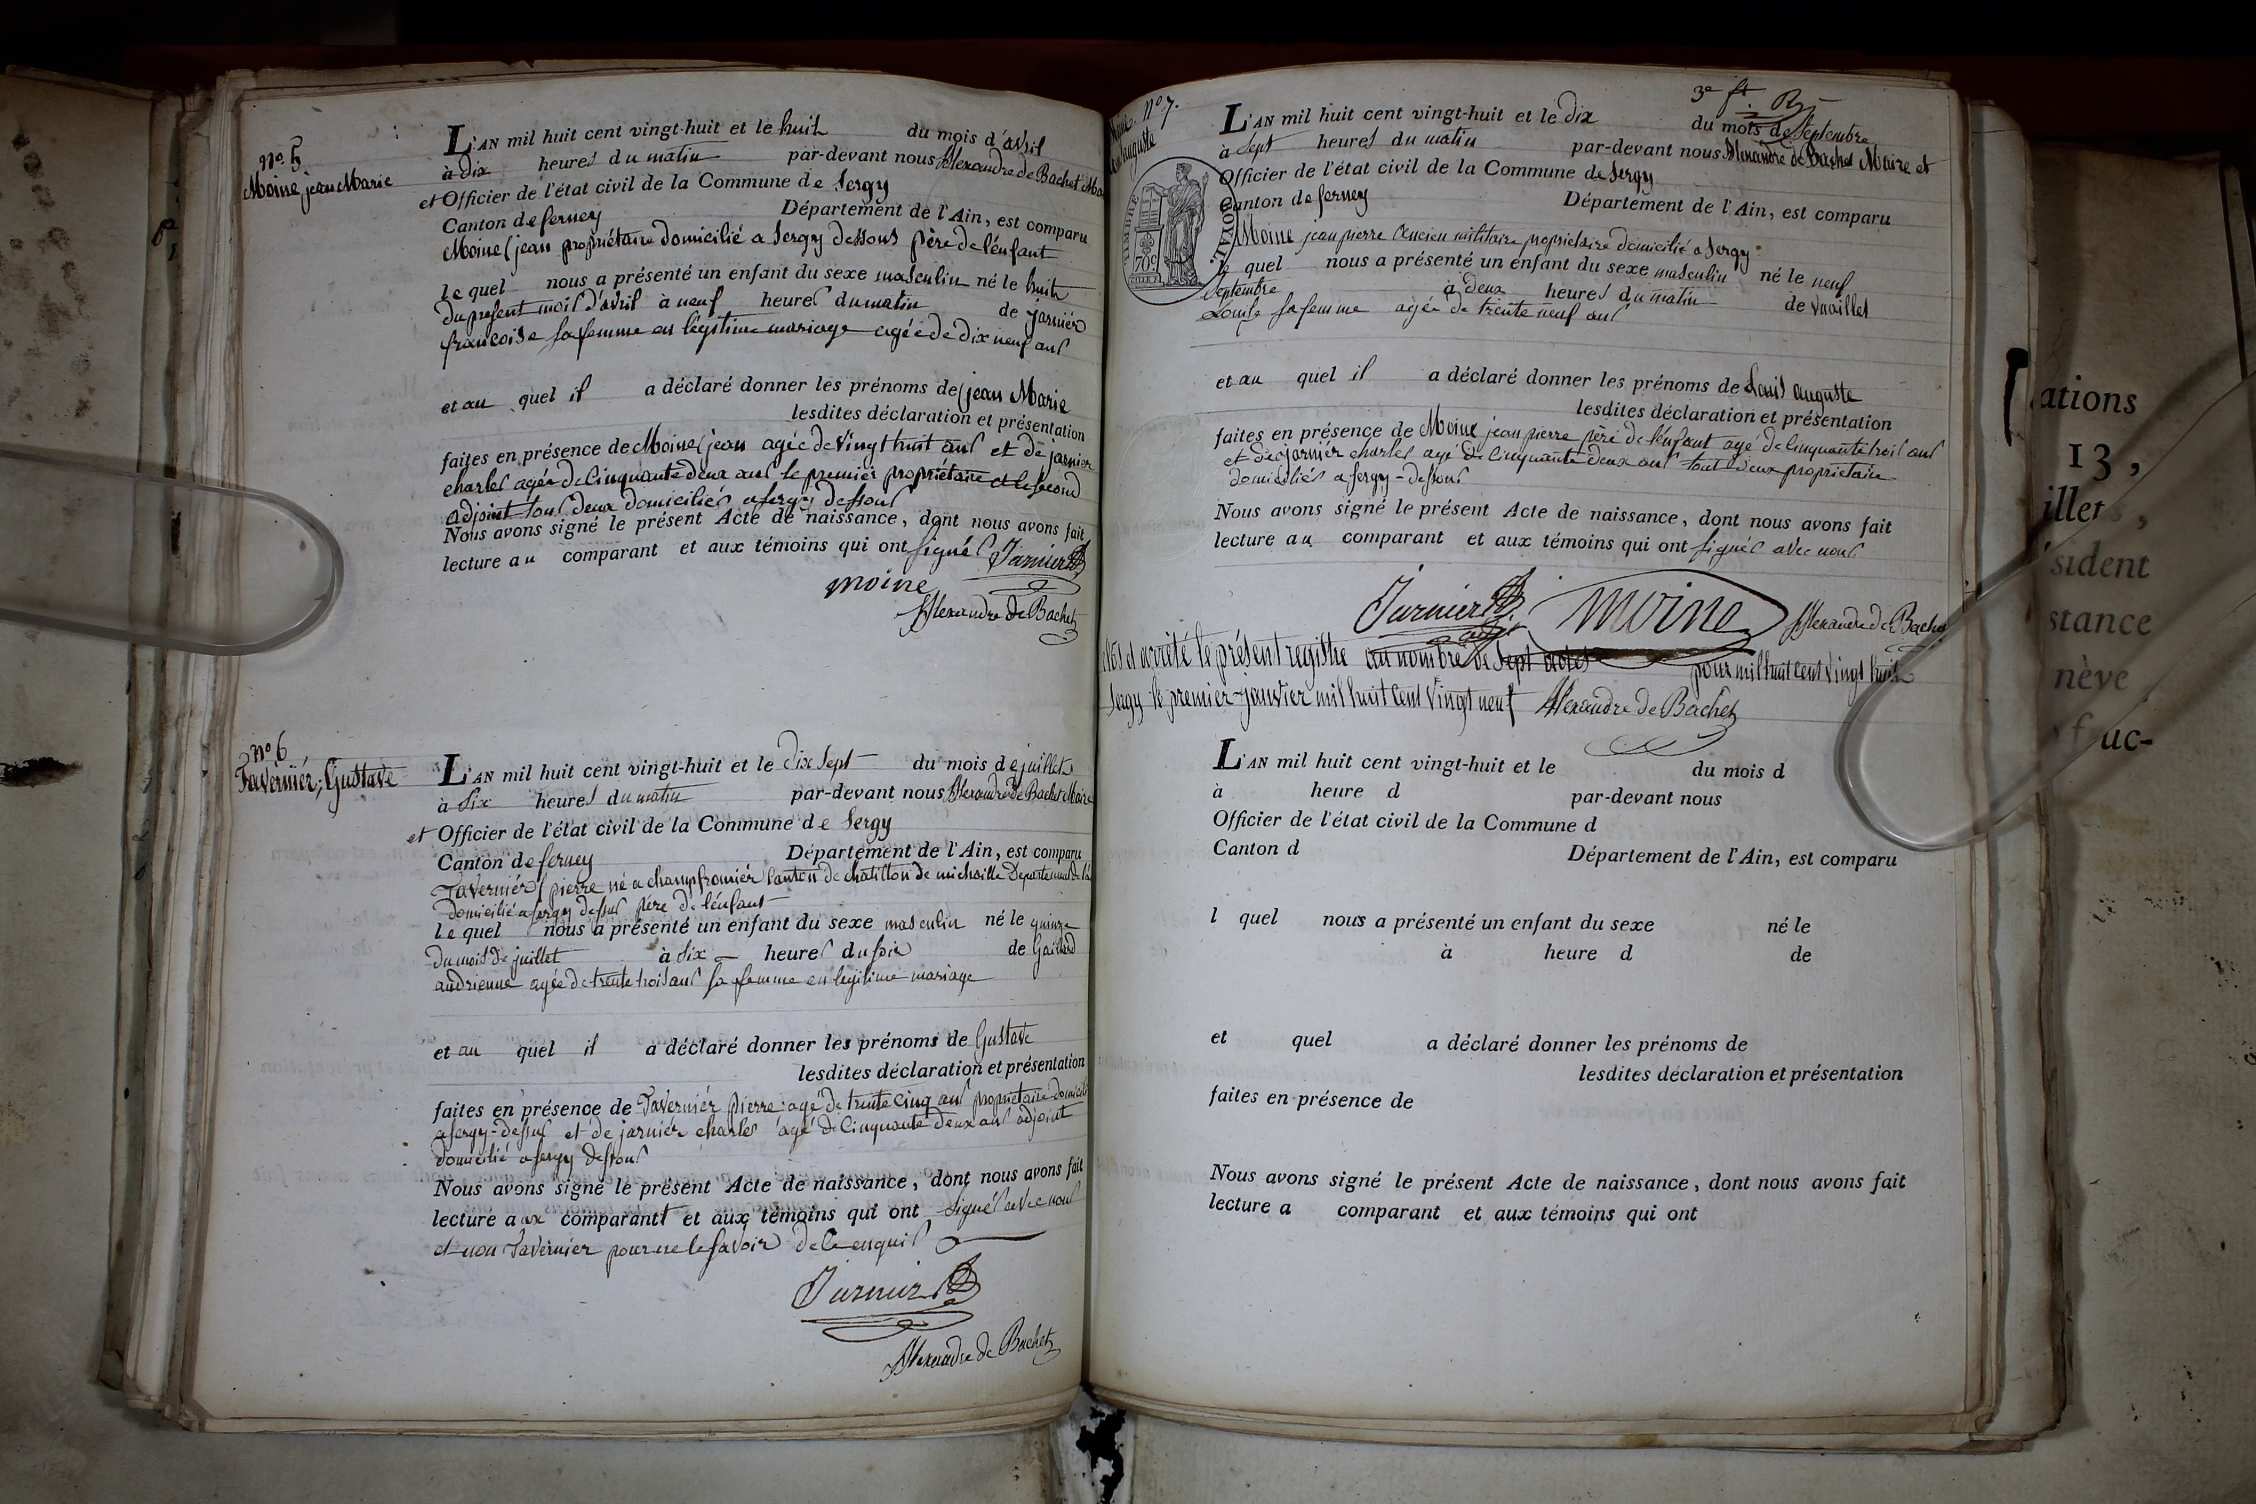 nº 5
Moine jean Marie
L'AN mil huit cent vingt-huit et le huit du mois d'avril
à dix heures du matin par-devant nous Alexandre de Bachet
et Officier de l'état civil de la Commune de Sergy
Canton de ferney Département de l'Ain, est comparu
Moine jean propriétaire domicilié a Sergy dessous père de l'enfant
le quel nous a présenté un enfant du sexe masculin né le huit
du present mois d'avril à neuf heures du matin de jarnier
francoise sa femme en légitime mariage agée de dix neuf ans
et au quel il a déclaré donner les prénoms de jean Marie
lesdites déclaration et présentation
faites en présence de Moine jean agée de vingt huit ans et de jarnier
charles agée de Cinquante deux ans le premier propriétaire et le second
adjoint tous deux domiciliés a sergy dessous
Nous avons signé le présent Acte de naissance, dont nous avons fait
lecture au comparant et aux témoins qui ont signés Jarnier
moine
Alexandre de Bachet
nº 6
Tavernier, Gustave
L'AN mil huit cent vingt-huit et le dix sept du mois de juillet
à six heures du matin par-devant nous Alexandre de Bachet Maire
et Officier de l'état civil de la Commune de Sergy
Canton de ferney Département de l'Ain, est comparu
Tavernier pierre né a champfromier Canton de chatillon de michaille Departement de
domicilié a sergy dessus père de l'enfant
le quel nous a présenté un enfant du sexe masculin né le quinze
du mois de juillet à six heures du soir de Gaillard
andrienne agée de trente trois ans sa femme en legitime mariage
et au quel il a déclaré donner les prénoms de Gustave
lesdites déclaration et présentation
faites en présence de Tavernier pierre agé de trente cinq ans propriétaire
a sergy-dessus et de jarnier charles agé de Cinquante deux ans adjoint
domicilié a sergy dessous
Nous avons signé le présent Acte de naissance, dont nous avons fait
lecture aux comparant et aux témoins qui ont signés avec nous
et non Tavernier pour ne le savoir de ce enquis
Jarnier
Alexandre de Bachet
nº 7.
auguste
3e
L'AN mil huit cent vingt-huit et le dix du mois de Septembre
à sept heures du matin par-devant nous Alexandre de Bachet Maire et
Officier de l'état civil de la Commune de Sergy
Canton de ferney Département de l'Ain, est comparu
TIMBRE ROYAL.
70c
Moine jean pierre Ancien militaire propriétaire domicilié a Sergy
le quel nous a présenté un enfant du sexe masculin né le neuf
Septembre à deux heures du matin de
Louise sa femme agée de trente neuf ans
et au quel il a déclaré donner les prénoms de Louis auguste
lesdites déclaration et présentation
faites en présence de Moine jean pierre père de l'enfant agé de Cinquante trois ans
et de jarnier charles agé de Cinquante deux ans tout deux propriétaire
domiciliés a sergy-dessous
Nous avons signé le présent Acte de naissance, dont nous avons fait
lecture au comparant et aux témoins qui ont signés avec nous
Jarnier moine Alexandre de Bachet
clos et arrêté le présent registre au nombre de sept actes pour mil huit cent vingt huit
Sergy le premier janvier mil huit cent vingt neuf Alexandre de Bachet
L'AN mil huit cent vingt-huit et le du mois d
à heure d par-devant nous
Officier de l'état civil de la Commune d
Canton d Département de l'Ain, est comparu
l quel nous a présenté un enfant du sexe né le
à heure d de
et quel a déclaré donner les prénoms de
lesdites déclaration et présentation
faites en présence de
Nous avons signé le présent Acte de naissance, dont nous avons fait
lecture a comparant et aux témoins qui ont
ations
13,
illet,
sident
stance
nève
uc-